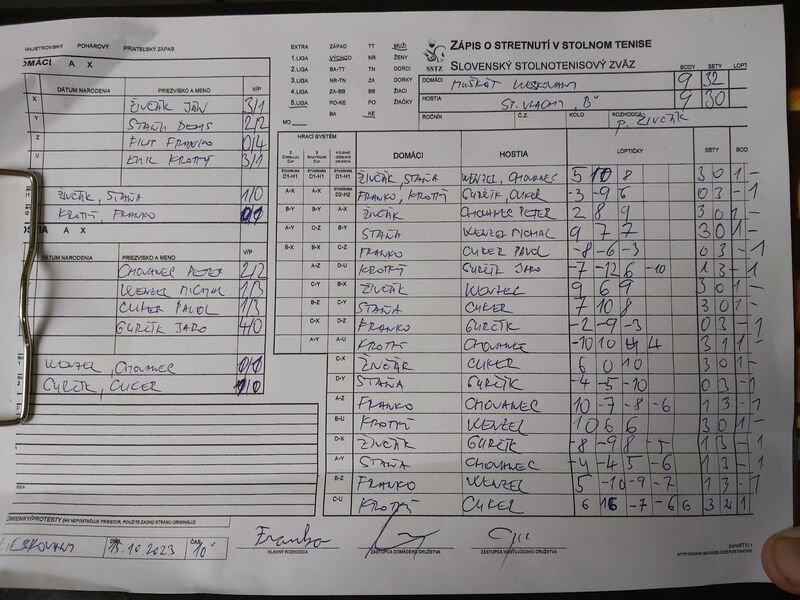 MAJSTROVSKÝ POHÁROVÝ PRIATEĽSKÝ ZÁPAS
DOMÁCI A X
DÁTUM NARODENIA PRIEZVISKO A MENO V/P
X ŽIVČÁK JÁN 3/1
Y STAŇA DENIS 2/2
Z FRANKO 0/4
U EMIL KROTKÝ 3/1
ŽIVČÁK, STAŇA 1/0
KROTKÝ, FRANKO 0/1
HOSTIA A X
DÁTUM NARODENIA PRIEZVISKO A MENO V/P
CHOVANEC PETER 2/2
WENZEL MICHAL 1/3
CUKER PAVOL 1/3
GURČÍK JARO 4/0
WENZEL, CHOVANEC 0/1
GURČÍK, CUKER 1/0
EXTRA ZÁPAD TT MUŽI
1.LIGA VÝCHOD NR ŽENY
2.LIGA BA-TT TN DORCI
3.LIGA NR-TN ZA DORKY
4.LIGA ZA-BB BB ŽIACI
5.LIGA PO-KE PO ŽIAČKY
MO BA KE
SSTZ
ZÁPIS O STRETNUTÍ V STOLNOM TENISE
SLOVENSKÝ STOLNOTENISOVÝ ZVÄZ
BODY SETY LOPT
DOMÁCI MUŠKÁT LIESKOVANY 9 32
HOSTIA SP. VLACHY "B" 9 30
ROČNÍK Č.Z. KOLO ROZHODCA P. ŽIVČÁK
HRACÍ SYSTÉM DOMÁCI HOSTIA LOPTIČKY SETY BODY
ŠTVORHRA D1-H1 ŠTVORHRA D1-H1 ŽIVČÁK, STAŇA WENZEL, CHOVANEC 5 10 8 3 0 1 -
A-X A-X ŠTVORHRA D2-H2 FRANKO, KROTKÝ GURČÍK, CUKER -3 -9 6 0 3 - 1
B-Y B-Y A-X ŽIVČÁK CHOVANEC PETER 2 8 9 3 0 1 -
A-Y C-Z B-Y STAŇA WENZEL MICHAL 9 7 7 3 0 1 -
B-X B-X C-Z FRANKO CUKER PAVOL -8 -6 -3 0 3 - 1
A-Z D-U KROTKÝ GURČÍK JARO -7 -12 6 -10 1 3 - 1
C-Y B-X ŽIVČÁK WENZEL 9 6 9 3 0 1 -
B-Z C-Y STAŇA CUKER 7 10 8 3 0 1 -
C-X D-Z FRANKO GURČÍK -2 -9 -3 0 3 - 1
A-Y A-U KROTKÝ CHOVANEC -10 10 4 4 3 1 1 -
C-X ŽIVČÁK CUKER 6 0 10 3 0 1 -
D-Y STAŇA GURČÍK -4 -5 -10 0 3 - 1
A-Z FRANKO CHOVANEC 10 -7 -8 -6 1 3 - 1
B-U KROTKÝ WENZEL 10 6 6 3 0 1 -
D-X ŽIVČÁK GURČÍK -8 -9 8 -5 1 3 - 1
A-Y STAŇA CHOVANEC -4 -4 5 -6 1 3 - 1
B-Z FRANKO WENZEL 5 -10 -9 -7 1 3 - 1
C-U KROTKÝ CUKER 6 16 -7 -6 6 3 2 1
PRIPOMIENKY/PROTESTY (AK NEPOSTAČUJE PRIESTOR, POUŽITE ZADNÚ STRANU ORIGINÁLU)
LIESKOVANY 15.10.2023 ČAS 10
Franko
HLAVNÝ ROZHODCA ZÁSTUPCA DOMÁCEHO DRUŽSTVA ZÁSTUPCA HOSŤUJÚCEHO DRUŽSTVA